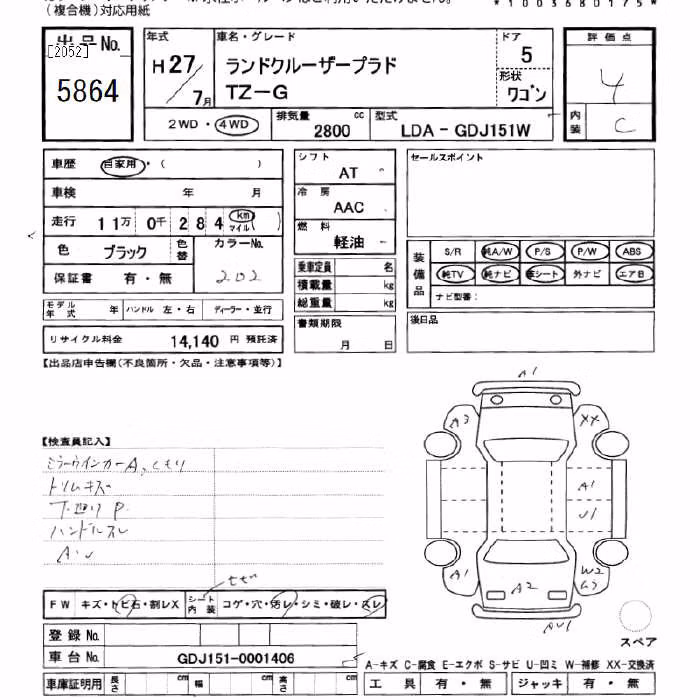 (複合機)対応用紙
*1003680175*
出品No.
[2052]
5864
年式
H27/7月
車名・グレード
ランドクルーザープラド
TZ-G
ドア
5
形状
ワゴン
2WD・4WD
排気量
2800 cc
型式
LDA - GDJ151W
評価点
4
内装
C
車歴 自家用・( )
車検 年 月
走行 11万 0千 284 km マイル ( )
色 ブラック 色替
カラーNo.
202
保証書 有・無
モデル年式 年 ハンドル 左・右 ディーラー・並行
リサイクル料金 14,140 円 預託済
シフト
AT
冷房
AAC
燃料
軽油
乗車定員 名
積載量 kg
総重量 kg
書類期限
月 日
セールスポイント
装備品
S/R 純A/W P/S P/W ABS
純TV 純ナビ 革シート 外ナビ エアB
ナビ型番:
後日品
【出品店申告欄(不良箇所・欠品・注意事項等)】
【検査員記入】
ミラーウインカーA、くもり
トリムキズ
下廻りP
ハンドルスレ
A・U
A1
A3
XX
A1
U1
A1
A2
W2
AU1
スペア
FW キズ・トビ石・割レX
シート内装 コゲ・穴・汚レ・シミ・破レ・スレ
登録No.
車台No. GDJ151-0001406
車庫証明用 長さ cm 幅 cm 高さ cm
A-キズ C-腐食 E-エクボ S-サビ U-凹ミ W-補修 XX-交換済
工具 有・無 ジャッキ 有・無